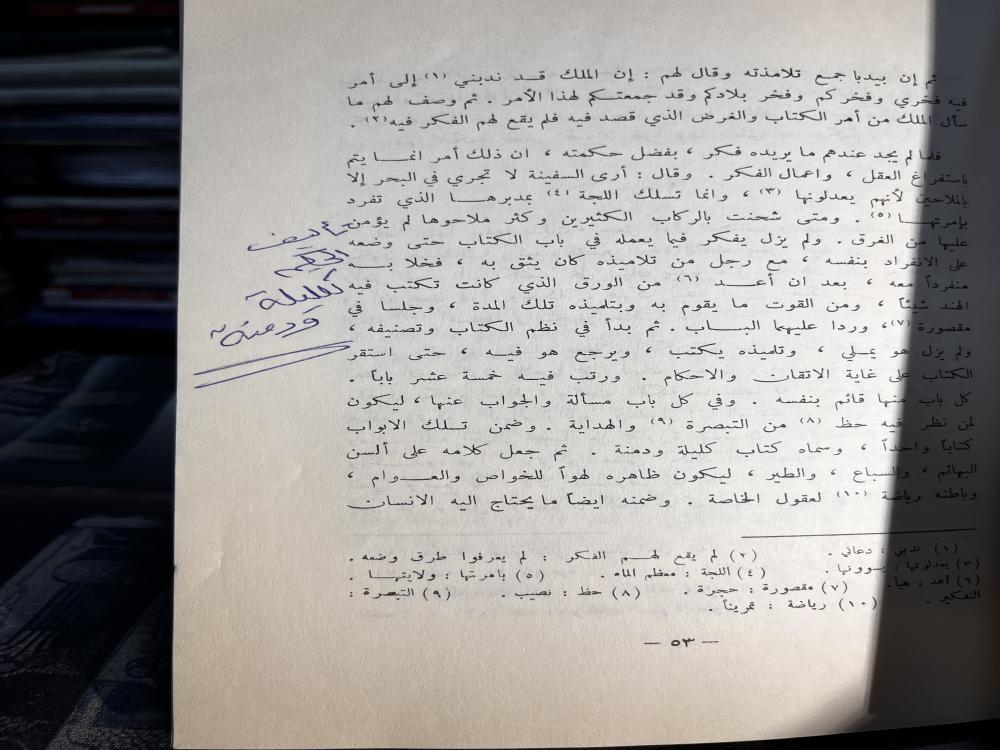 ثم إن بيدبا جمع تلامذته وقال لهم : إن الملك قد ندبني (١) إلى أمر
فيه فخري وفخركم وفخر بلادكم وقد جمعتكم لهذا الأمر . ثم وصف لهم ما
سأل الملك من أمر الكتاب والغرض الذي قصد فيه فلم يقع لهم الفكر فيه (٢) .
فلما لم يجد عندهم ما يريده فكر ، بفضل حكمته ، ان ذلك أمر انما يتم
باستفراغ العقل ، واعمال الفكر . وقال : أرى السفينة لا تجري في البحر إلا
بالملاحين لأنهم يعدلونها (٣) ، وانما تسلك اللجة (٤) بمدبرها الذي تفرد
بإمرتها (٥) . ومتى شحنت بالركاب الكثيرين وكثر ملاحوها لم يؤمن
عليها من الغرق . ولم يزل يفكر فيما يعمله في باب الكتاب حتى وضعه
على الانفراد بنفسه ، مع رجل من تلاميذه كان يثق به ، فخلا به
منفرداً معه ، بعد ان أعد (٦) من الورق الذي كانت تكتب فيه
الهند شيئاً ، ومن القوت ما يقوم به وبتلميذه تلك المدة ، وجلسا في
مقصورة (٧) ، وردا عليهما الباب . ثم بدأ في نظم الكتاب وتصنيفه ،
ولم يزل هو يملي ، وتلميذه يكتب ، ويرجع هو فيه ، حتى استقر
الكتاب على غاية الاتقان والاحكام . ورتب فيه خمسة عشر باباً .
كل باب منها قائم بنفسه . وفي كل باب مسألة والجواب عنها ، ليكون
لمن نظر فيه حظ (٨) من التبصرة (٩) والهداية . وضمن تلك الابواب
كتاباً واحداً ، وسماه كتاب كليلة ودمنة . ثم جعل كلامه على ألسن
البهائم ، والسباع ، والطير ، ليكون ظاهره لهواً للخواص والعوام ،
وباطنه رياضة (١٠) لعقول الخاصة . وضمنه ايضاً ما يحتاج اليه الانسان
تأليف
الحكيم
لكليلة
ودمنة
(١) ندبني : دعاني . (٢) لم يقع لهم الفكر : لم يعرفوا طرق وضعه .
(٣) يعدلونها : يسوونها . (٤) اللجة : معظم الماء . (٥) بامرتها : ولايتها .
(٦) أعد : هيأ . (٧) مقصورة : حجرة . (٨) حظ : نصيب . (٩) التبصرة :
التفكير . (١٠) رياضة : تمريناً .
— ٥٣ —